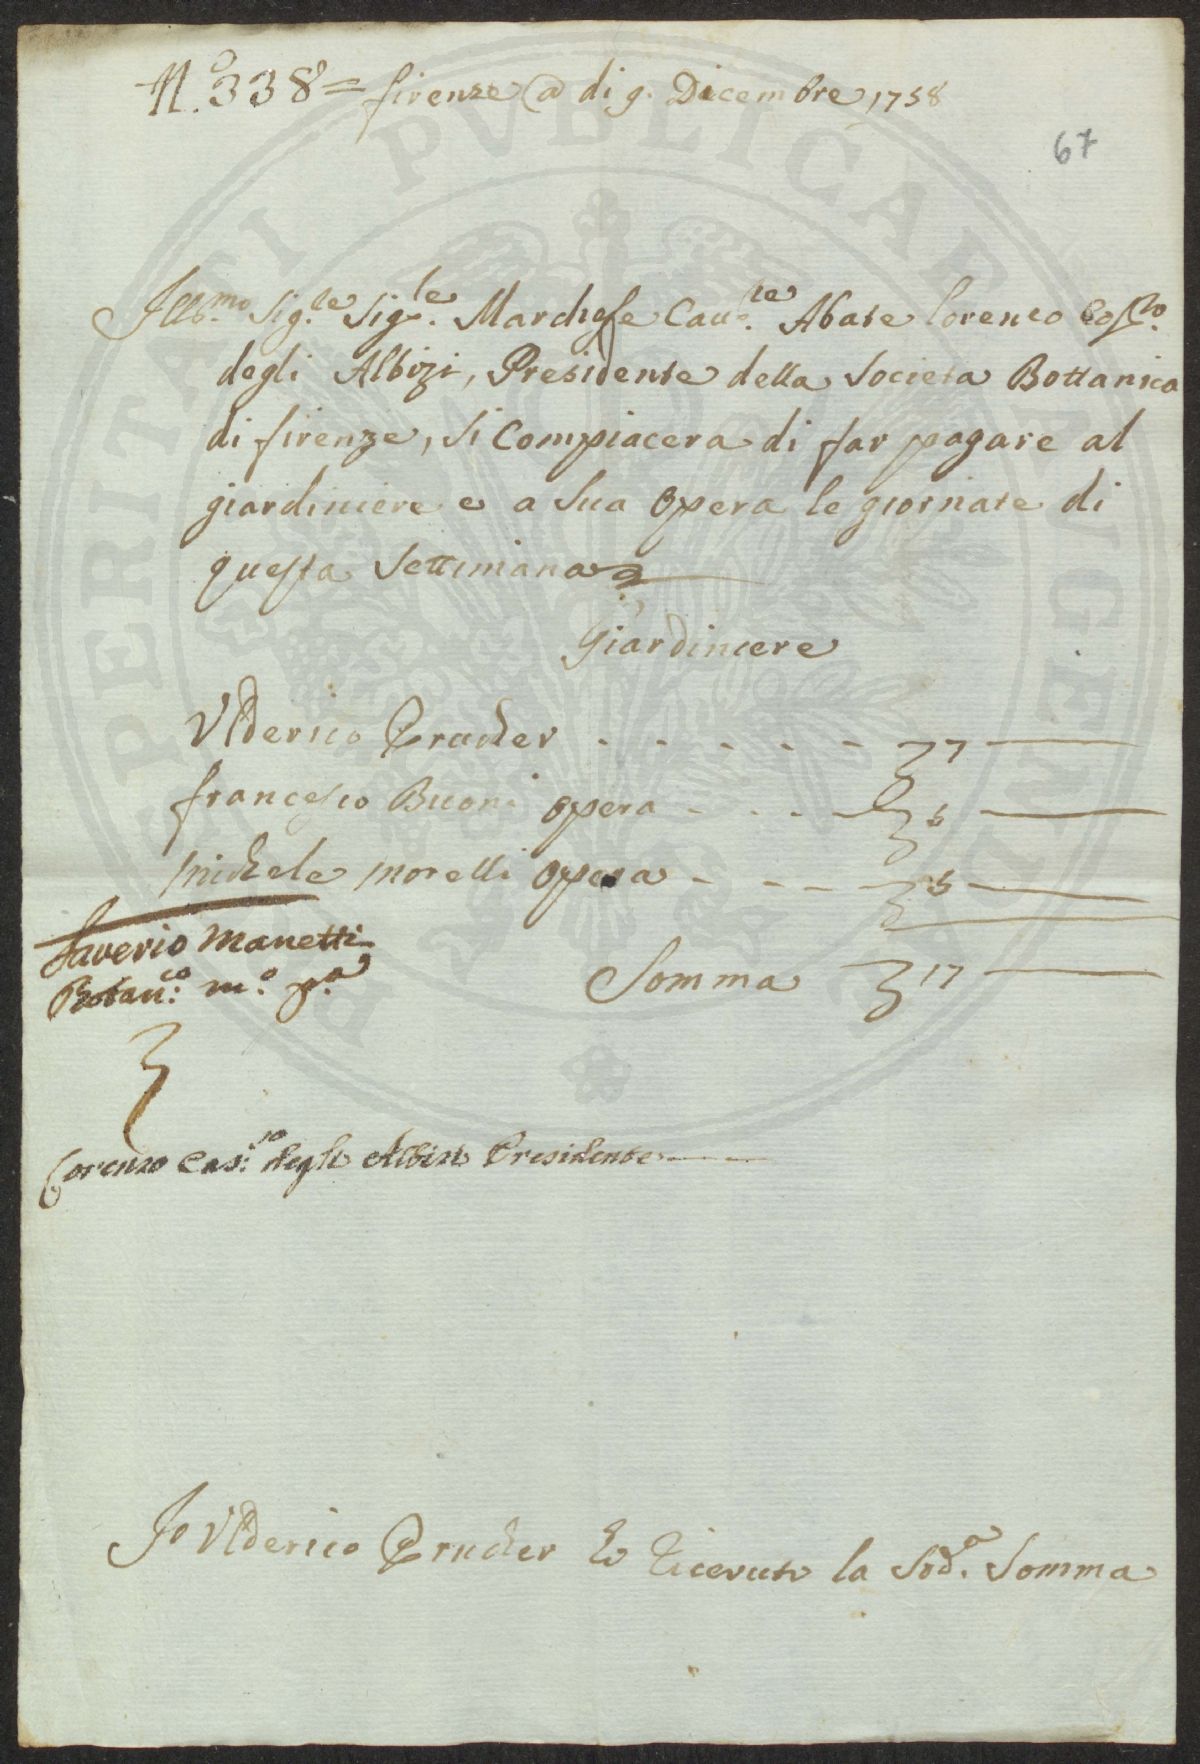 N.o 338 = firenze @ di 9. Dicembre 1758
67
Illmo. Sig.re Sig.re Marchese Cau.re Abate Lorenzo
degli Albizi, Presidente della Societa Bottanica
di firenze, Si Compiacera di far pagare al
giardiniere e a Sua Opera le giornate di
questa Settimana
Giardiniere
Vlderico Prucher - - - - - - 7
francesco Buoni opera - - - - 5
Michele Morelli Opera - - - 5
Saverio Manetti
Botan.co m.o p.a
Somma 17
Lorenzo Cas.to degli Albizi Presidente
Io Vlderico Prucher ho Riceuuto la Sod.a Somma
PERITATI PVBLICAE AVGENDAE